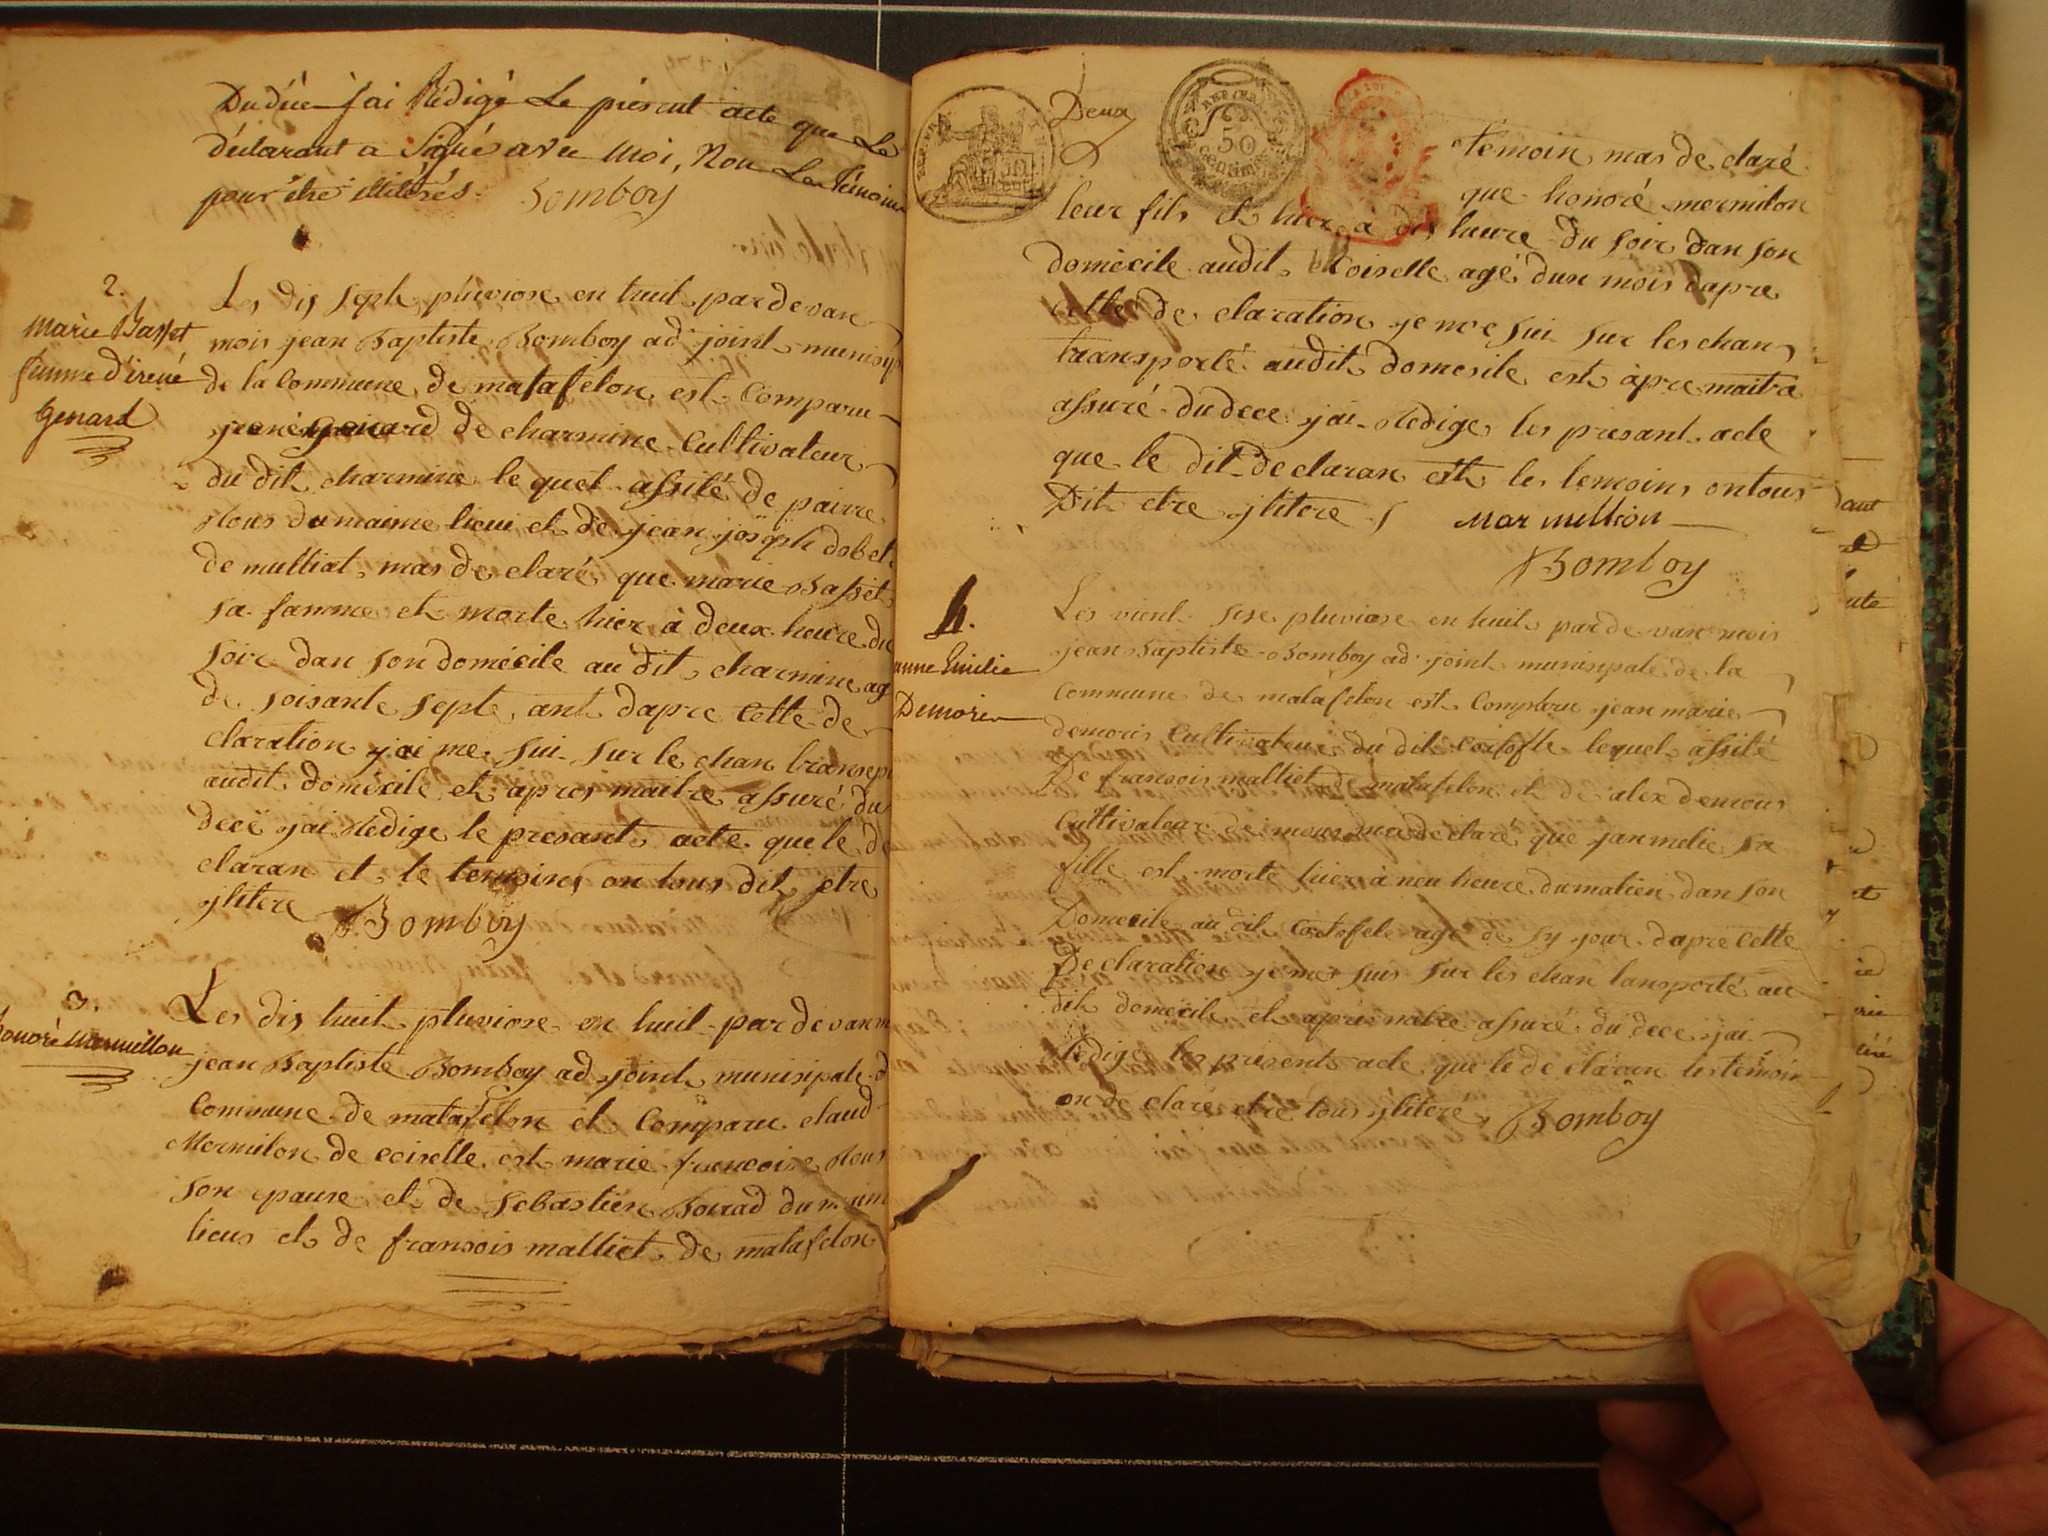 Du décé J'ai Rédigé Le présent acte que Le
déclarant a Signé avec Moi, Non Les témoins
pour être illitérés. Bomboy
2.
Marie Basset
femme d'irené
Genard
Les dis sept pluviose en huit par de van
mois jean Baptiste Bomboy ad joint munisip
de la Commune de matafelon est Comparu
jrené genard de charmine Cultivateur
du dit charmine le quel assité de pairre
du maime lieui et de jean joseph
de mulliat mas de claré que marie Basset
sa famme et morte hier à deux heure du
soir dan son domécile au dit charmine ag
de soisante septe ant dapre Cette de
claration jai me sui sur le chan transpor
audit domécile et apres maitre assuré du
decé jai Redige le presant acte que le de
claran et le temoins on tous dit etre
jlitere Bomboy
3.
honoré Mermillon
Les dis huit pluviose en huit par de van m
jean Baptiste Bomboy ad joint munisipale d
Commune de matafelon et Comparu claud
Mermilon de coiselle est marie francoise
son pause et de Sebastien du maim
lieus et de fransois malliet de matafelon
Deux
REP. FRA.
50
centimes
temoin mas de claré
que honoré mermilon
leur fils et hier à dis heure du soir dan son
domécile audit Coiselle agé dun mois dapre
cette de claration je me sui sur les chan
transporté audit domesile est àpre maitre
assuré du dece jai Redige les presant acte
que le dit de claran est les temoins on tous
Dit etre jlitere Mar million
Bomboy
4.
anne Emilie
Demorie
Les vient sise pluviose en huit par de van mois
jean Baptiste Bomboy ad joint munisipale de la
Commune de matafelon est Comparu jean marie
demoris Cultivateur du dit lequel assité
De fransois malliet de matafelon et de alex demoris
Cultivateur de mons ma de claré que janmelie sa
fille est morte hier à neu heure du matien dan son
Domecile au dit agé de sy jour dapre Cette
De claration je me suis sur les chan tansporté au
dit domécile et aprés mètre assuré du dece jai
Redige les presents acte que le de claran les temoin
on de claré etre tous jliteré Bomboy